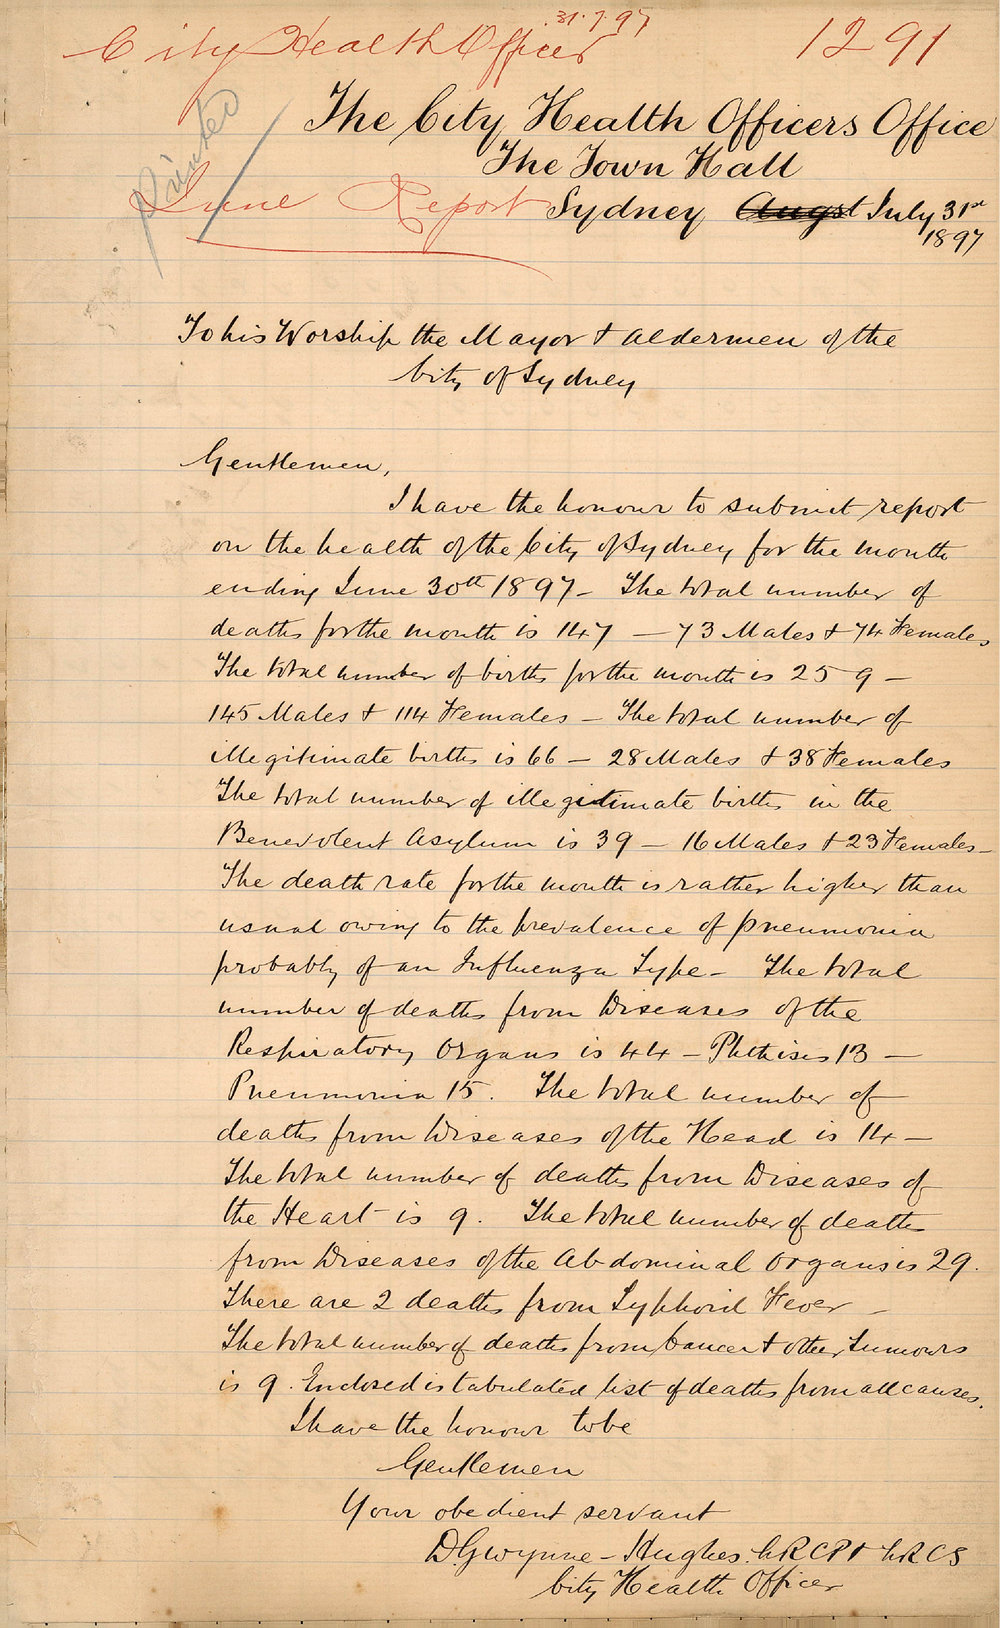 31.7.97
City Health Officer 1291
The City Health Officers Office
Printed
The Town Hall
June Report Sydney Augst July 31st
1897
To his Worship the Mayor & Aldermen of the
City of Sydney
Gentlemen,
I have the honour to submit report
on the health of the City of Sydney for the month
ending June 30th 1897 - The total number of
deaths for the month is 147 - 73 Males & 74 Females
The total number of births for the month is 259 -
145 Males & 114 Females - The total number of
illegitimate births is 66 - 28 Males & 38 Females
The total number of illegitimate births in the
Benevolent Asylum is 39 - 16 Males & 23 Females -
The death rate for the month is rather higher than
usual owing to the prevalence of pneumonia
probably of an Influenza Type - The total
number of deaths from Diseases of the
Respiratory Organs is 44 - Phthisis 13 -
Pneumonia 15. The total number of
deaths from Diseases of the Head is 14 -
The total number of deaths from Diseases of
the Heart is 9. The total number of deaths
from Diseases of the Abdominal Organs is 29.
There are 2 deaths from Typhoid Fever -
The total number of deaths from Cancer & other Tumours
is 9. Enclosed is tabulated list of deaths from all causes.
I have the honour to be
Gentlemen
Your obedient servant
D. Gwynne-Hughes. LRCP & LRCS
City Health Officer